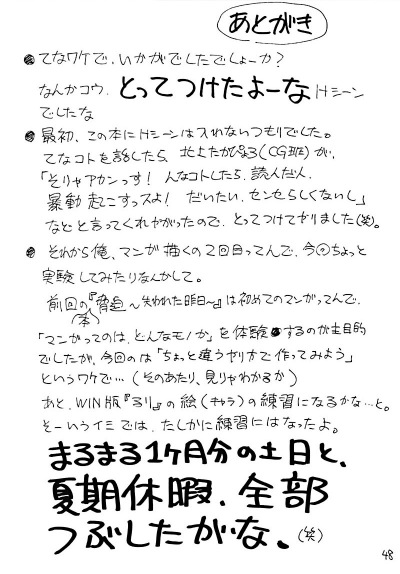 あとがき
●てなワケで、いかがでしたでしょーか?
なんかコウ、とってつけたよーなHシーン
でしたな
●最初、この本にHシーンは入れないつもりでした。
てなコトを話したら、北上たかぴょろ(CG班)が、
「そりゃアカンっす! んなコトしたら、読んだ人、
暴動起こすっスよ! だいたい、センセらしくないし」
などと言ってくれやがったので、とってつけてやりました(笑)。
●それから俺、マンガ描くの2回目ってんで、今回ちょっと
実験してみたりなんかして。
前回の『脅迫〜失われた明日〜』は初めてのマンガってんで、
(本)
「マンガってのは、どんなモノか」を体験するのが主目的
でしたが、今回のは「ちょっと違うやり方で作ってみよう」
というワケで…(そのあたり、見りゃわかるか)
あと、WIN版『るり』の絵(キャラ)の練習になるかな…と。
そーいうイミでは、たしかに練習にはなったよ。
まるまる1ヶ月分の土日と、
夏期休暇、全部
つぶしたがな。(笑)
48